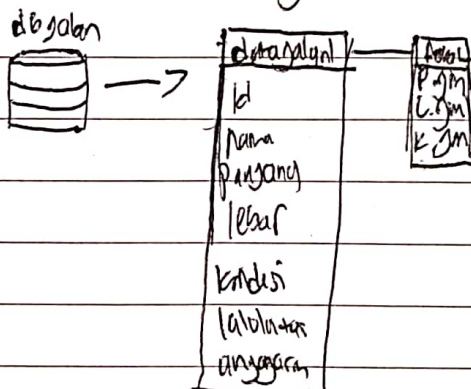 dbjalan
datajalan
Id
nama
panjang
lebar
kondisi
lalulintas
anggaran
P. jln
L. jln
K. jln